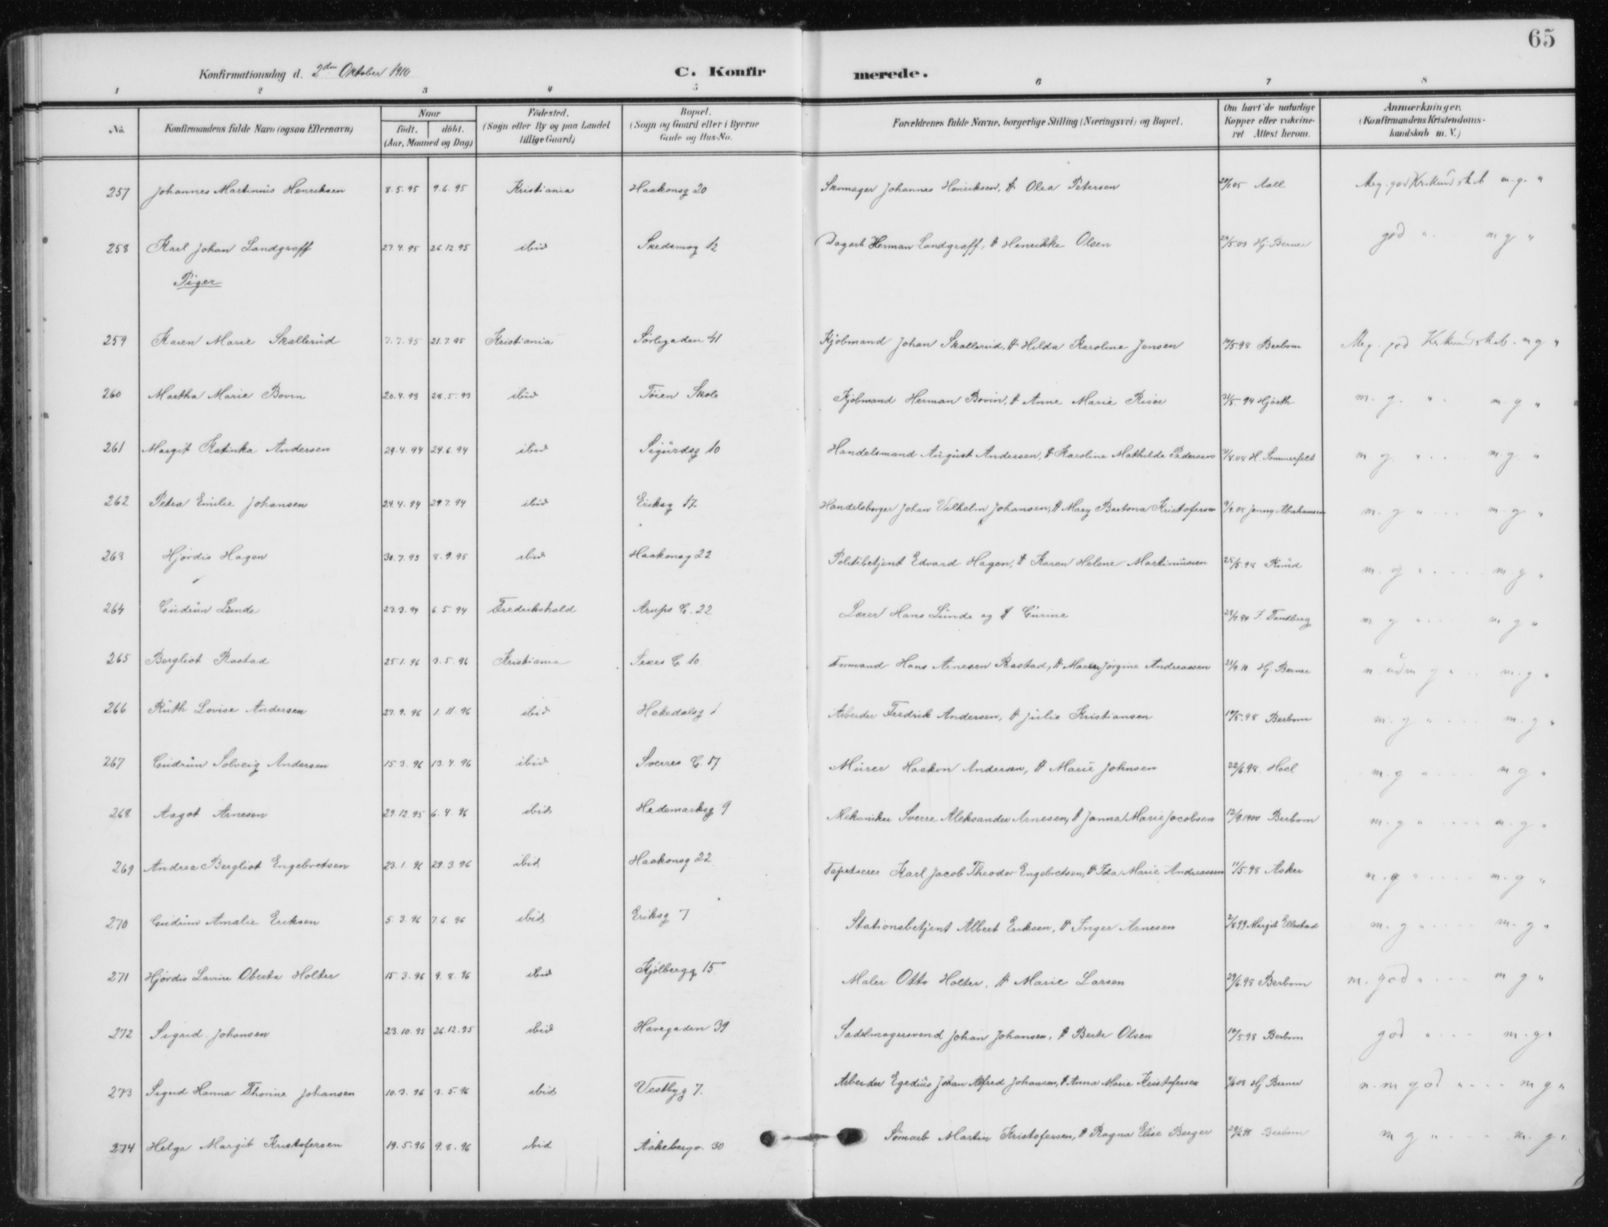 65
Konfirmationsdag d. 2den Oktober 1910 C. Konfirmerede.
1 2 3 4 5 6 7 8
No. Konfirmandens fulde Navn (ogsaa Efternavn) Naar født. døbt. (Aar, Maaned og Dag) Fødested. (Sogn eller By og paa Landet tillige Gaard) Bopæl. (Sogn og Gaard eller i Byerne Gade og Hus-No. Forældrenes fulde Navne, borgerlige Stilling (Næringsvei) og Bopæl. Om havt de naturlige Kopper eller vakcineret Attest herom. Anmærkninger. (Konfirmandens Kristendomskundskab m. V.)
257 Johannes Martinius Henriksen 8.5.95 9.6.95 Kristiania Haakonsg 20 Skomager Johannes Henriksen, & Olea Petersen Aall Meg. god Kr.kundskab m.g. "
258 Karl Johan Landgraff 27.9.95 26.12.95 ibid Skedsmog 12 Dagarb Herman Landgraff, & Henrikke Olsen Hj. Berner god " m g "
Piger
259 Karen Marie Skallerud 7.7.95 21.7.95 Kristiania Sørligaden 41 Kjøbmand Johan Skallerud, & Hilda Karoline Jensen Berbom Meg. god Kr.kundskab. m g "
260 Martha Marie Bovin 20.4.93 28.5.93 ibid Tøien Skole Kjøbmand Herman Bovin, & Anne Marie Hjorth m. g. " m g "
261 Margit Katinka Andersen 29.4.94 24.6.94 ibid Sigurdsg 10 Handelsmand August Andersen, & Karoline Mathilde Pedersen H. Sommerfelt m g. " m g. "
262 Petra Emilie Johansen 29.4.94 29.7.94 ibid Eiriksg 17 Handelsborger Johan Vilhelm Johansen, & Mary Bertona Kristofersen Jenny Abrahamsen m. g " m. g "
263 Hjørdis Hagen 30.7.95 8.9.95 ibid Haakonsg 22 Politibetjent Edvard Hagen, & Karen Helene Martinussen Ruud m. g " m g "
264 Gudrun Lunde 27.3.94 6.5.94 Fredrikshald Arups G. 22 Lærer Hans Lunde og & Gurine F. Tandberg m g " m g "
265 Bergliot Rastad 25.1.96 3.5.96 Kristiania Sexes G 10 Formand Hans Arnesen Rastad, & Maren Jørgine Andreassen Hj. Berner m g " m. g "
266 Ruth Lovise Andersen 27.9.96 1.11.96 ibid Hakedalsg 1 Arbeider Fredrik Andersen, & Julie Kristiansen Berbom m. g " m. g "
267 Gudrun Solveig Andersen 15.3.96 13.4.96 ibid Sverres G. 17 Murer Haakon Andersen, & Marie Johnsen Hoel m. g " m g "
268 Aagot Arnesen 29.12.95 6.4.96 ibid Hedemarksg 9 Mekaniker Sverre Aleksander Arnesen, & Janna Marie Jacobsen Berbom m. g " m. g "
269 Andrea Bergliot Engebretsen 23.1.96 29.3.96 ibid Haakonsg 22 Tapetserer Karl Jacob Theodor Engebretsen, & Ida Marie Andreassen 11/5.98 Asker m. g " m. g "
270 Gudrun Amalie Eriksen 5.3.96 7.6.96 ibid Eriksg 7 Stationsbetjent Albert Eriksen, & Inger Arnesen Margit Ellestad m. g " m. g "
271 Hjørdis Lavine Oberta Holter 15.3.96 9.8.96 ibid Kjølbergg 15 Maler Otto Holter, & Marie Larsen Berbom m. god " m g "
272 Sigrid Johansen 23.10.95 26.12.95 ibid Havegaden 39 Sadelmagersvend Johan Johansen, & Berte Olsen Berbom god " m. g "
273 Sigrid Hanna Thorine Johansen 10.3.96 3.5.96 ibid Vestbyg 7. Arbeider Egedius Johan Alfred Johansen, & Anna Marie Kristofersen Hj Berner n. m god " m g "
274 Helga Margit Kristofersen 19.5.96 9.8.96 ibid Aakebergv. 30 Sømarb Martin Kristofersen, & Ragna Elise Berger Berbom m g " m. g "